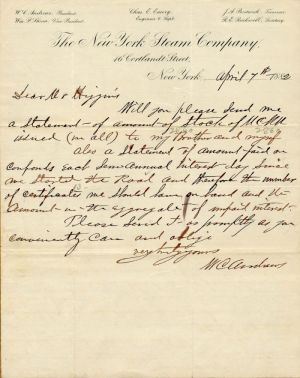 W.C. Andrews, President
Wm. P. Shinn, Vice President
Chas. E. Emery,
Engineer & Supt.
J.A. Bostwick, Treasurer
R.E. Rockwell, Secretary
The New York Steam Company,
16 Cortlandt Street,
New York April 7th 1882
Dear Mr Higgins
Will you please send me
a statement of amount of Stock of
issued (in all) to my Brother and myself
also a Statement of amount paid on
Coupons each Semi Annual Interest day since
we the Road and the number
of certificates we should have on hand and the
amount in the aggregate of unpaid interest.
Please send it as promptly as you
conveniently can and oblige
very truly yours
W C Andrews